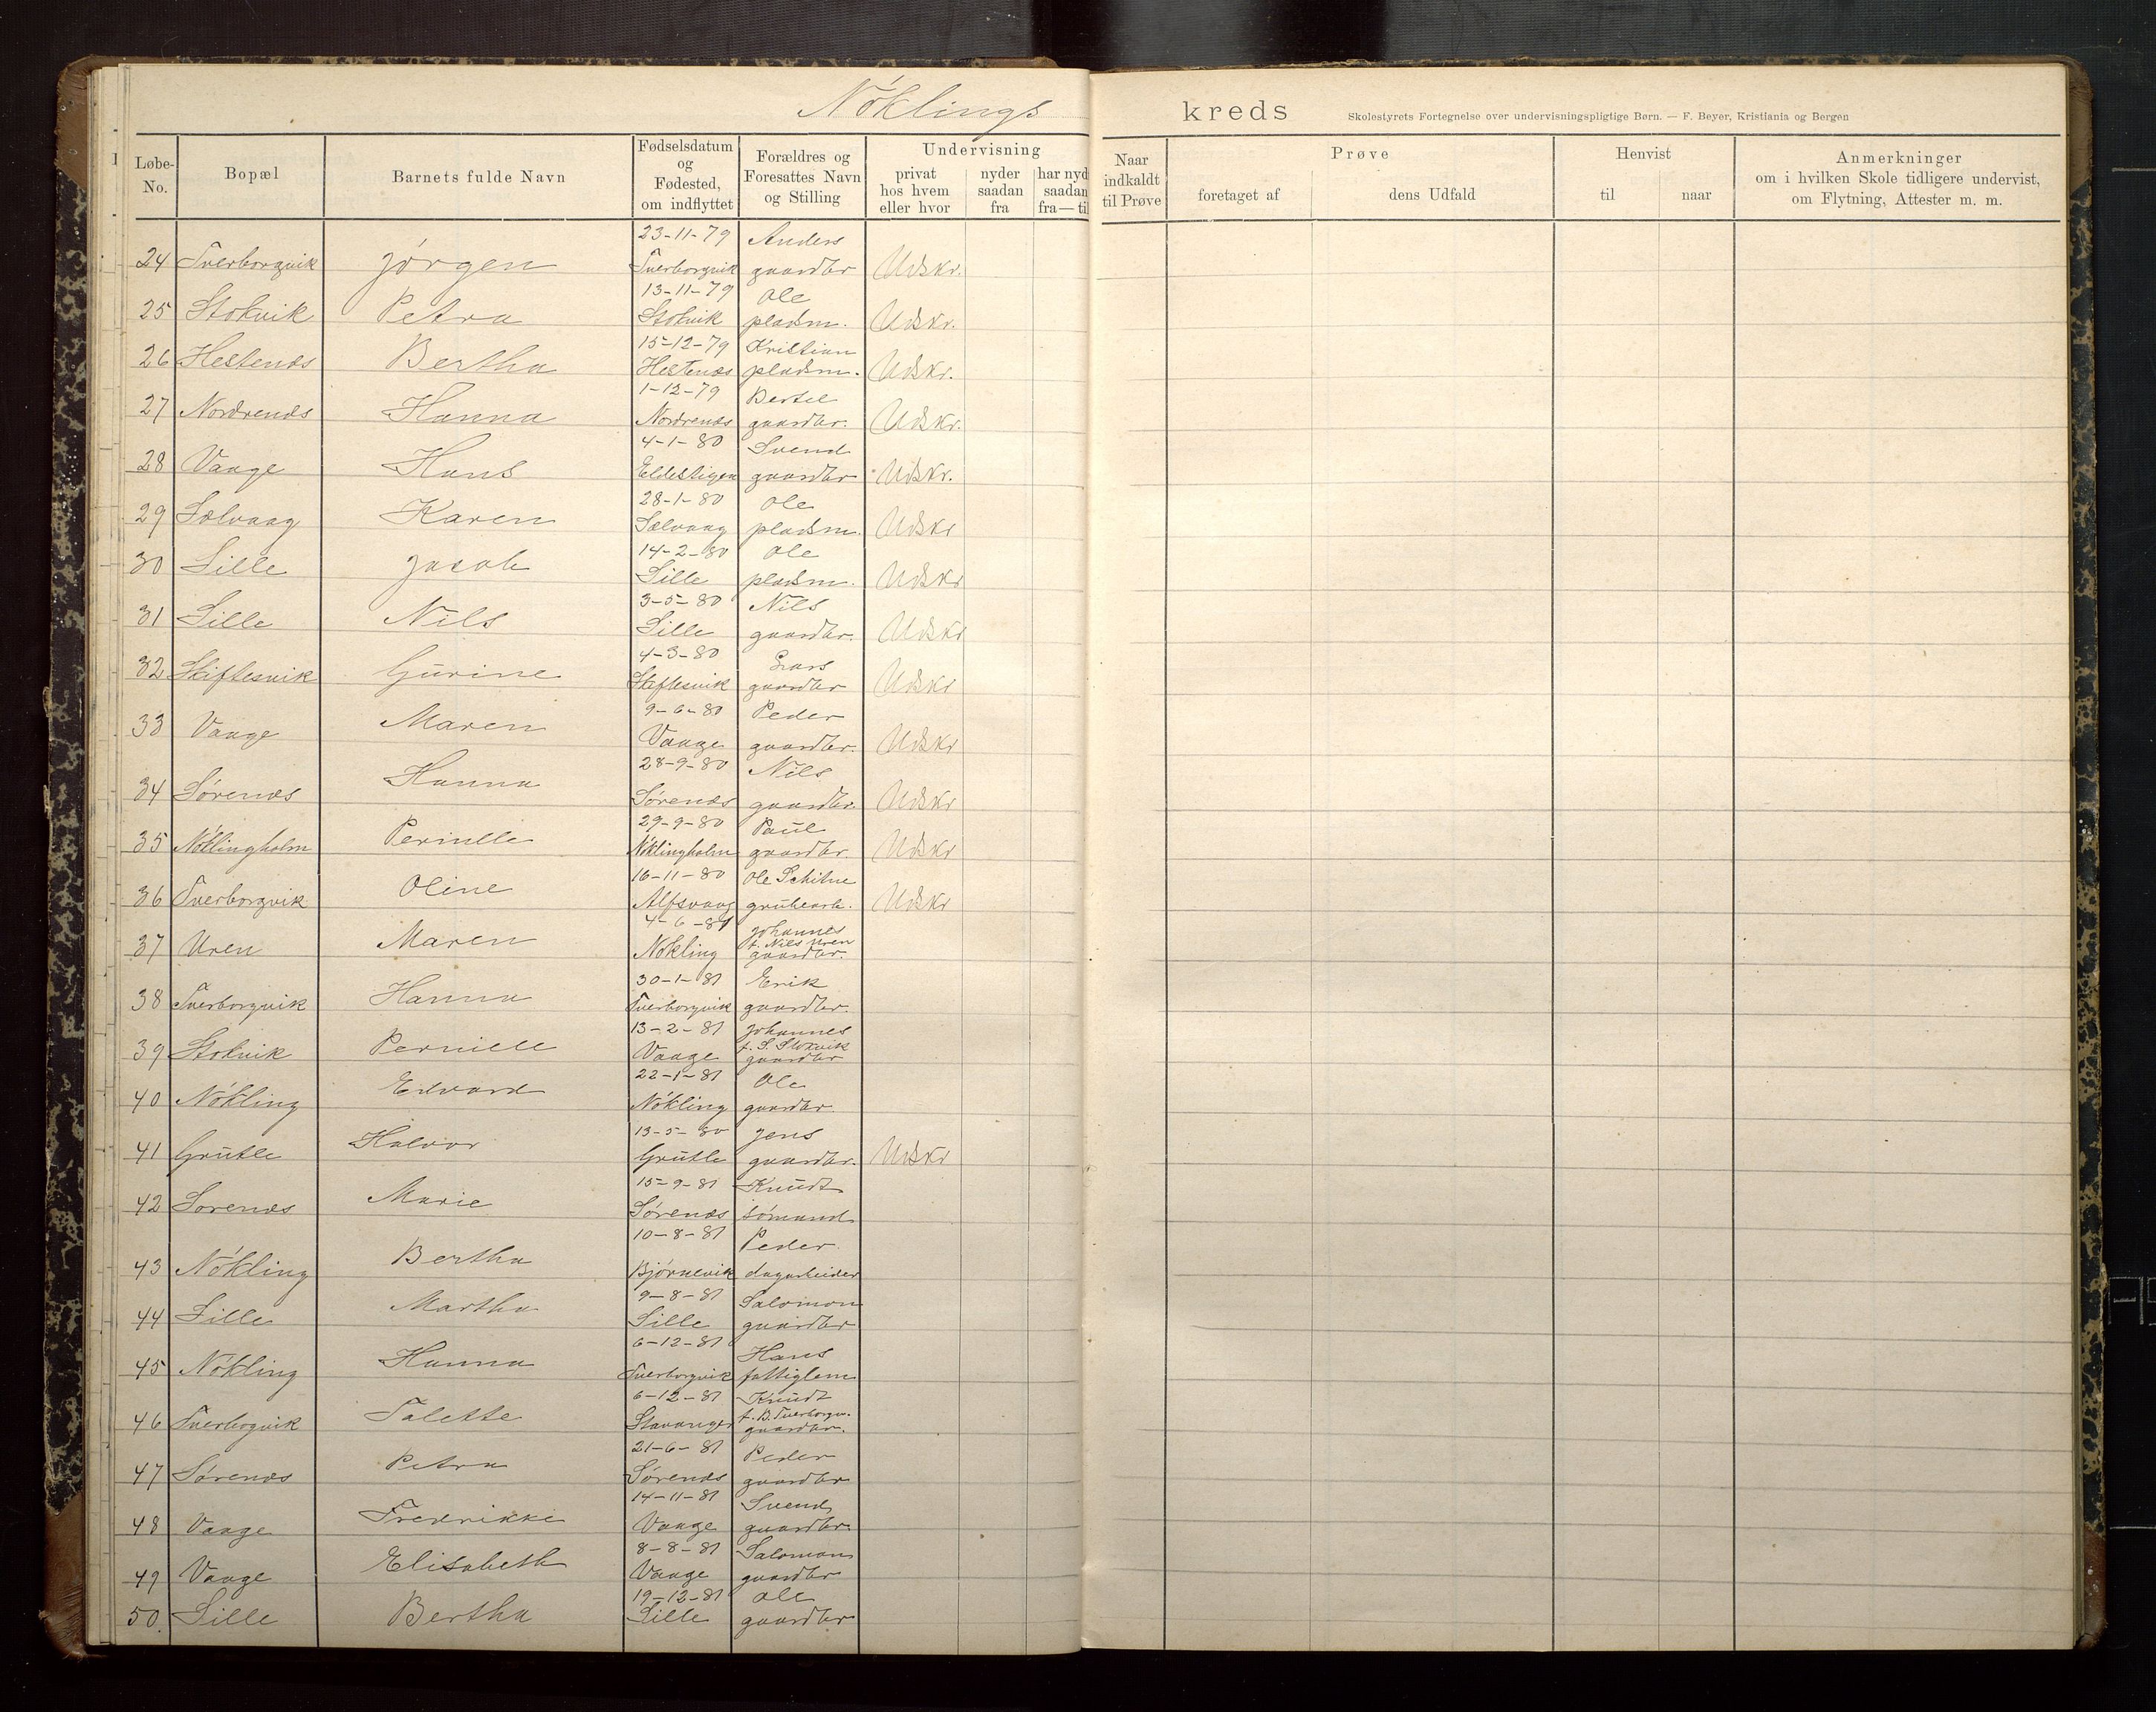 Nöklings kreds
Skolestyrets Fortegnelse over undervisningspligtige Børn. — F. Beyer, Kristiania og Bergen
Løbe-No. Bopæl Barnets fulde Navn Fødselsdatum og Fødested, om indflyttet Forældres og Foresattes Navn og Stilling Undervisning privat hos hvem eller hvor nyder saadan fra har nyd saadan fra—til Naar indkaldt til Prøve Prøve foretaget af dens Udfald Henvist til naar Anmerkninger om i hvilken Skole tidligere undervist, om Flytning, Attester m. m.
23-11-79 Anders
24 Tverborgvik Jörgen Tverborgvik gaardbr Udskr.
13-11-79 Ole
25 Stokvik Petra Stokvik pladsm. Udskr.
15-12-79 Kristian
26 Hestenæs Bertha Hestenæs pladsm. Udskr.
1-12-79 Bertel
27 Nordrenæs Hanna Nordrenæs gaardbr. Udskr.
4-1-80 Svend
28 Vaage Hans Eldestigen gaardbr Udskr.
28-1-80 Ole
29 Sælvaag Karen Sælvaag pladsm. Udskr
14-2-80 Ole
30 Lille Jacob Lille pladsm. Udskr
3-5-80 Nils
31 Lille Nils Lille gaardbr. Udskr
4-3-80 Lars
32 Skiftesvik Gurine Skiftesvik gaardbr Udskr
9-6-80 Peder
33 Vaage Maren Vaage gaardbr. Udskr
28-9-80 Nils
34 Sörenæs Hanna Sörenæs gaardbr. Udskr
29-9-80 Paul
35 Nöklingholm Pernille Nöklingholm gaardbr. Udskr
16-11-80 Ole
36 Tverborgvik Oline Alfsvaag grubearb. Udskr
4-6-81 Johannes
f. Nils Uren
37 Uren Maren Nökling gaardbr.
30-1-81 Erik
38 Tverborgvik Hanna Tverborgvik gaardbr.
13-2-81 Johannes
f. S. Stokvik
39 Stokvik Pernille Vaage gaardbr
22-1-81 Ole
40 Nökling Edvard Nökling gaardbr.
13-5-80 Jens
41 Grutle Halvor Grutle gaardbr. Udskr
15-9-81 Knudt
42 Sörenæs Marie Sörenæs sömand
10-8-81 Peder
43 Nökling Bertha Björnevik dagarbeider
9-8-81 Salomon
44 Lille Martha Lille gaardbr
6-12-81 Hans
45 Nökling Hanna Tverborgvik fattiglem
6-12-81 Knudt
f. B. Tverborgv.
46 Tverborgvik Talette Stavanger gaardbr.
21-6-81 Peder
47 Sörenæs Petra Sörenæs gaardbr
14-11-81 Svend
48 Vaage Fredrikke Vaage gaardbr.
8-8-81 Salomon
49 Vaage Elisabeth Vaage gaardbr
19-12-81 Ole
50. Lille Bertha Lille gaardbr